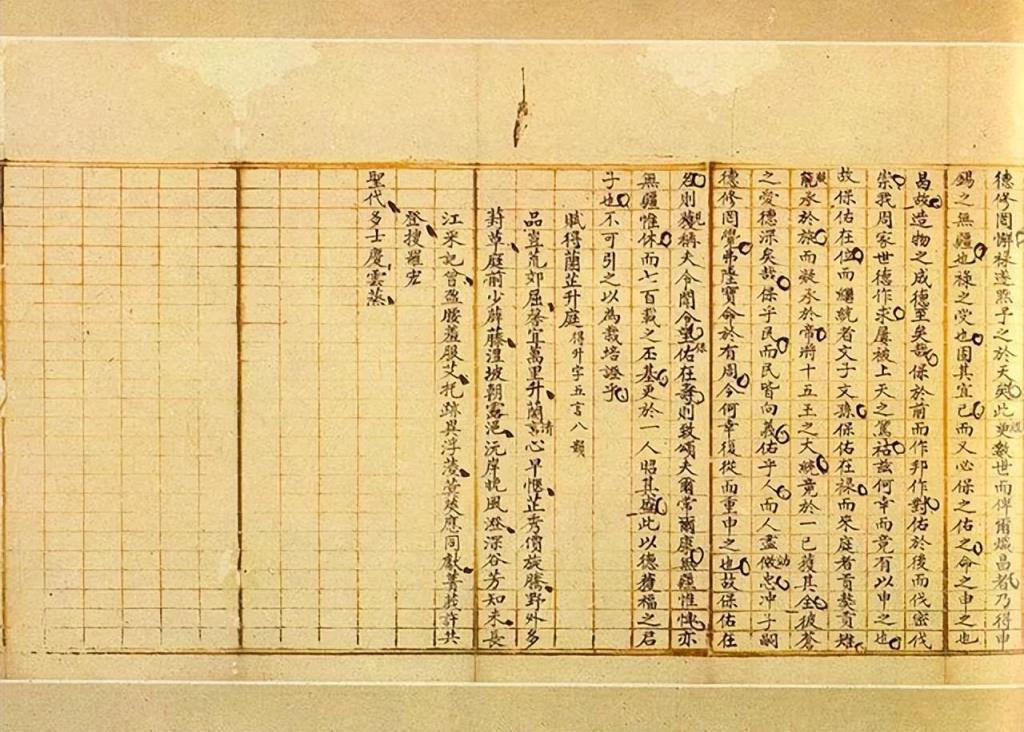 德修罔懈祿遂照予之於天矣此更數世而俾爾熾昌者乃得申
錫之無疆也祿之受也固其宜已而又必保之佑之命之申之也
昌故造物之成德至矣哉保於前而作邦作對佑於後而伐密伐
崇我周家世德作求屢被上天之篤祜茲何幸而竟有以申之也
故保佑在位而繼統者文子文孫保佑在祿而來庭者貢獒貢雉
寵承於族而凝承於帝將十五王之大統竟於一己獲其全彼蒼
之愛德深矣哉保乎民而民皆向義佑乎人而人盡傚忠沖子嗣
德修罔覺弗墜寶命於有周今何幸復從而重申之也故保佑在
名則獲稱夫令聞令望佑在壽則致頌夫爾常爾康無疆惟恤亦
無疆惟休而七百載之丕基更於一人昭其盛此以德獲福之君
子也不可引之以為栽培證乎
賦得蘭芷升庭得升字五言八韻
品豈荒郊屈馨宜萬里升蘭言心早愜芷秀價旋騰野外多
葑草庭前少薜藤湼坡朝露浥沅岸晚風澄深谷芳知未長
江采記曾盈腰羞服艾托跡異浮蔆蓂莢應同獻菁莪許共
登搜羅宏
聖代多士慶雲蒸